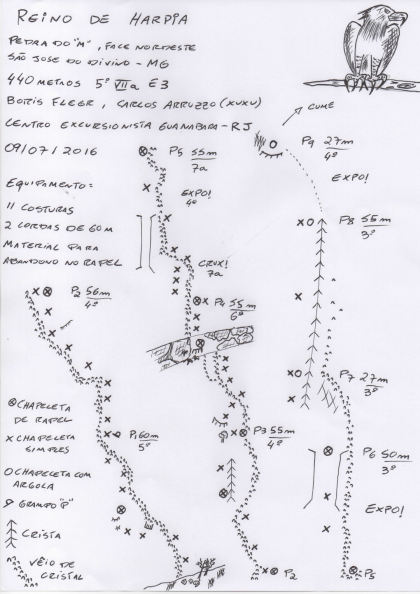 REINO DE HARPIA
PEDRA DO "M", FACE NORDESTE
SÃO JOSE DO DIVINO - MG
440 METROS 5° VIIa E3
BORIS FLEGR, CARLOS ARRUZZO (XUXU)
CENTRO EXCURSIONISTA GUANABARA - RJ
09/07/2016
EQUIPAMENTO:
11 COSTURAS
2 CORDAS DE 60M
MATERIAL PARA
ABANDONO NO RAPEL
P2 56m
4°
P1 60m
5°
CHAPELETA
DE RAPEL
X CHAPELETA
SIMPLES
CHAPELETA COM
ARGOLA
GRAMPO "P"
CRISTA
VÉIO DE
CRISTAL
P5 55m
7a
EXPO!
4°
CRUX!
7a
P4 55m
6°
P3 55m
4°
P2
CUME
P9 27m
4°
EXPO!
P8 55m
3°
P7 27m
3°
P6 50m
3°
EXPO!
P5